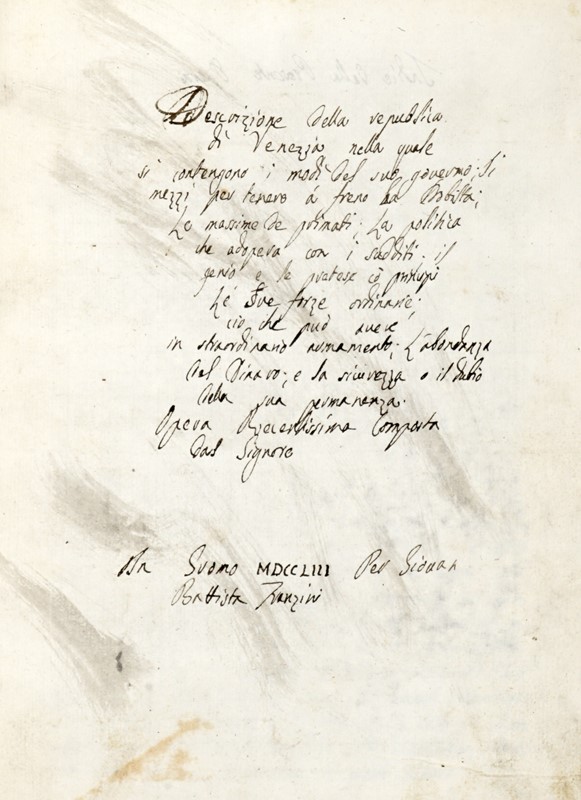 Descrizione della republica
di Venezia nella quale
si contengono i modi del suo governo; Li
mezzi per tenere á freno la Nobiltà;
Le massime de primati; La politica
che adopera con i sudditi; il
genio e le pretese cō principi
Le sue forze ordinarie;
ciò che può avere,
in straordinario armamento; L'abondanza
del Dinaro; e la sicurezza o il dubio
della sua permanenza.
Opera Recentissima Composta
dal Signore
MDCCLIII Per Giovan
Battista